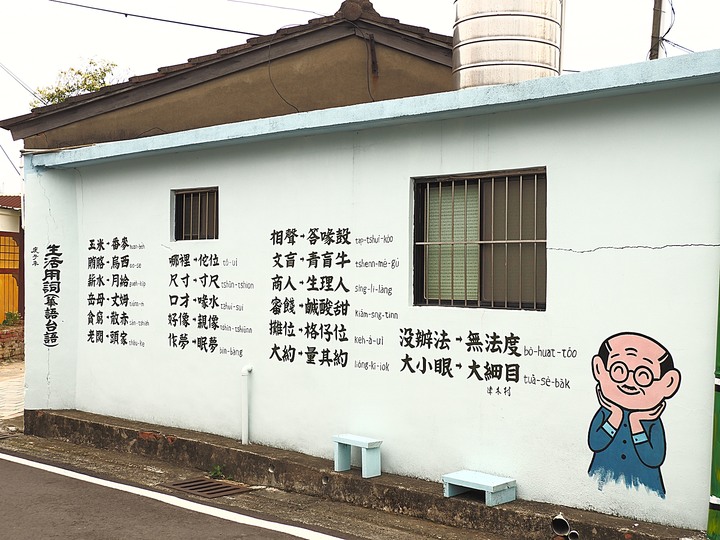 生活用詞(華語台語)
玉米→番麥
賄賂→烏西 oo-se
薪水→月給
岳母→丈姆
貪窮→散赤 sàn-tshiah
老闆→頭家 thâu-ke
哪裡→佗位 tó-uī
尺寸→寸尺 tshùn-tshioh
口才→喙水 tshuì-suí
好像→親像 tshin-tshiūnn
作夢→眠夢 bîn-bāng
相聲→答喙鼓 tap-tshuì-kóo
文盲→青盲牛 tshenn-mê-gû
商人→生理人 sing-lí-lâng
審餞→鹹酸甜 kiâm-sng-tinn
攤位→格仔位 keh-á-uī
大約→量其約 liōng-kî-iok
沒辦法→無法度 bô-huat-tōo
大小眼→大細目 tuā-sè-ba̍k